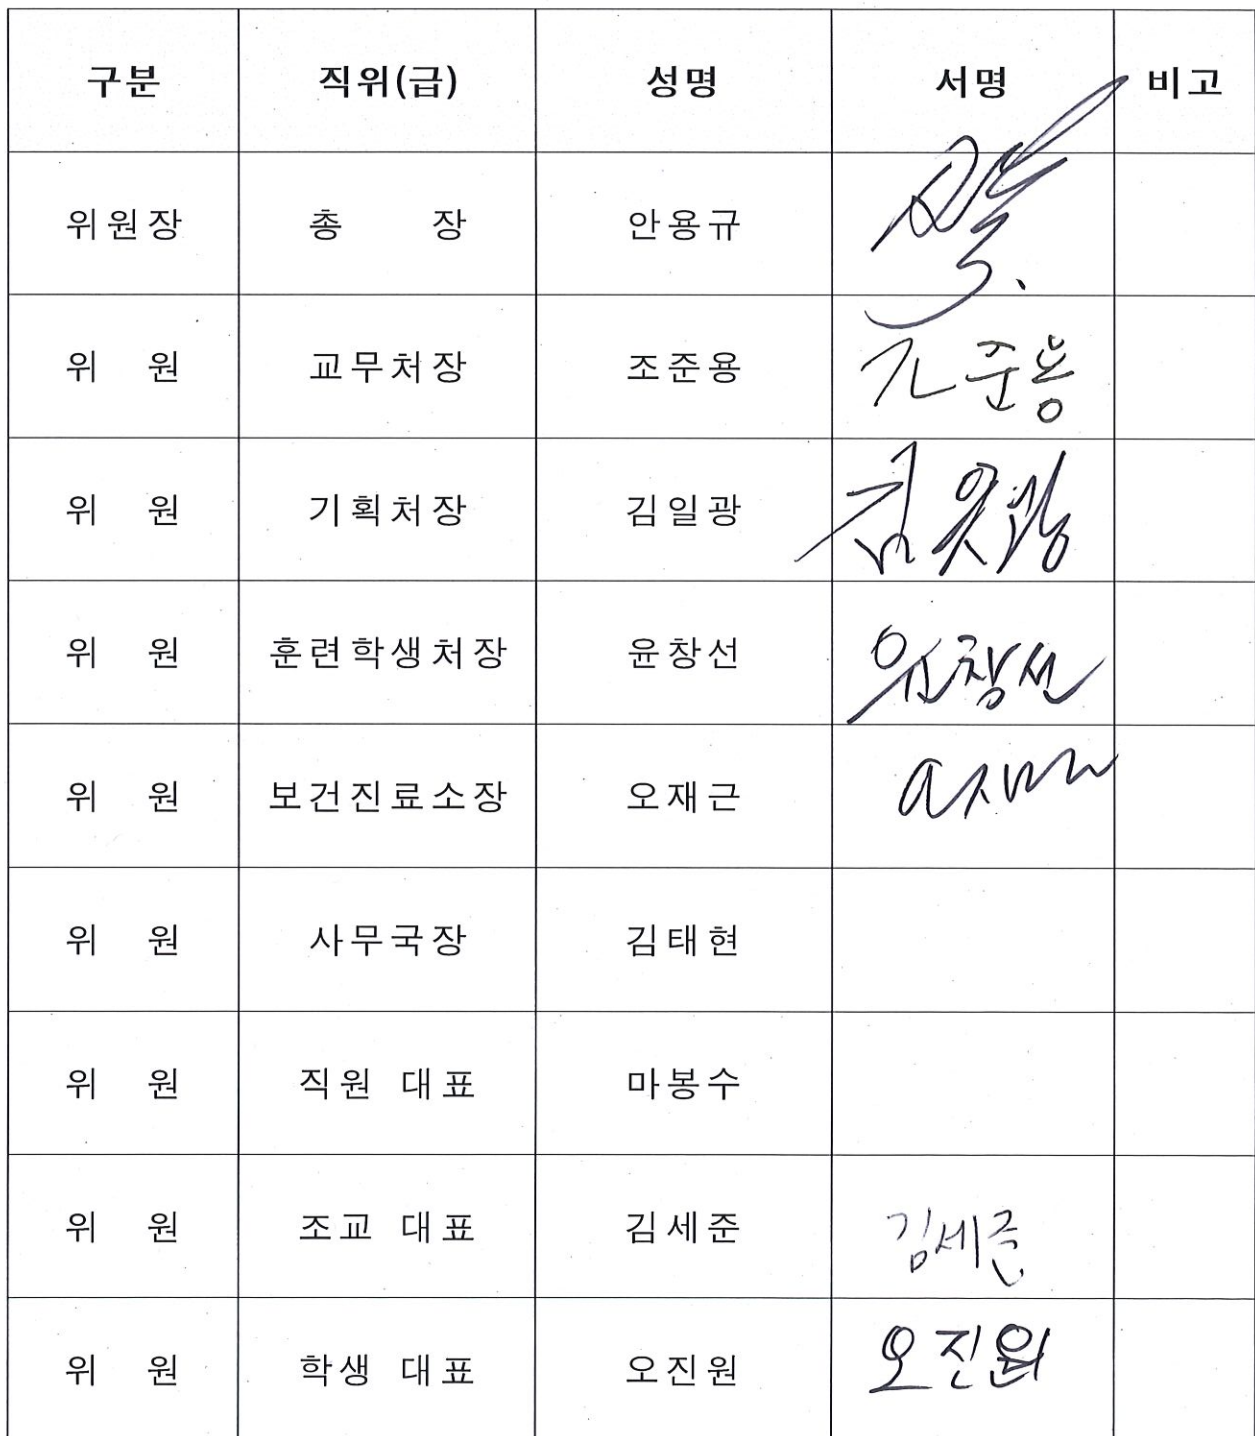 구분 직위(급) 성명 서명 비고
위원장 총 장 안용규
위 원 교무처장 조준용 조준용
위 원 기획처장 김일광 김일광
위 원 훈련학생처장 윤창선 윤창선
위 원 보건진료소장 오재근 오재근
위 원 사무국장 김태현
위 원 직원 대표 마봉수
위 원 조교 대표 김세준 김세준
위 원 학생 대표 오진원 오진원